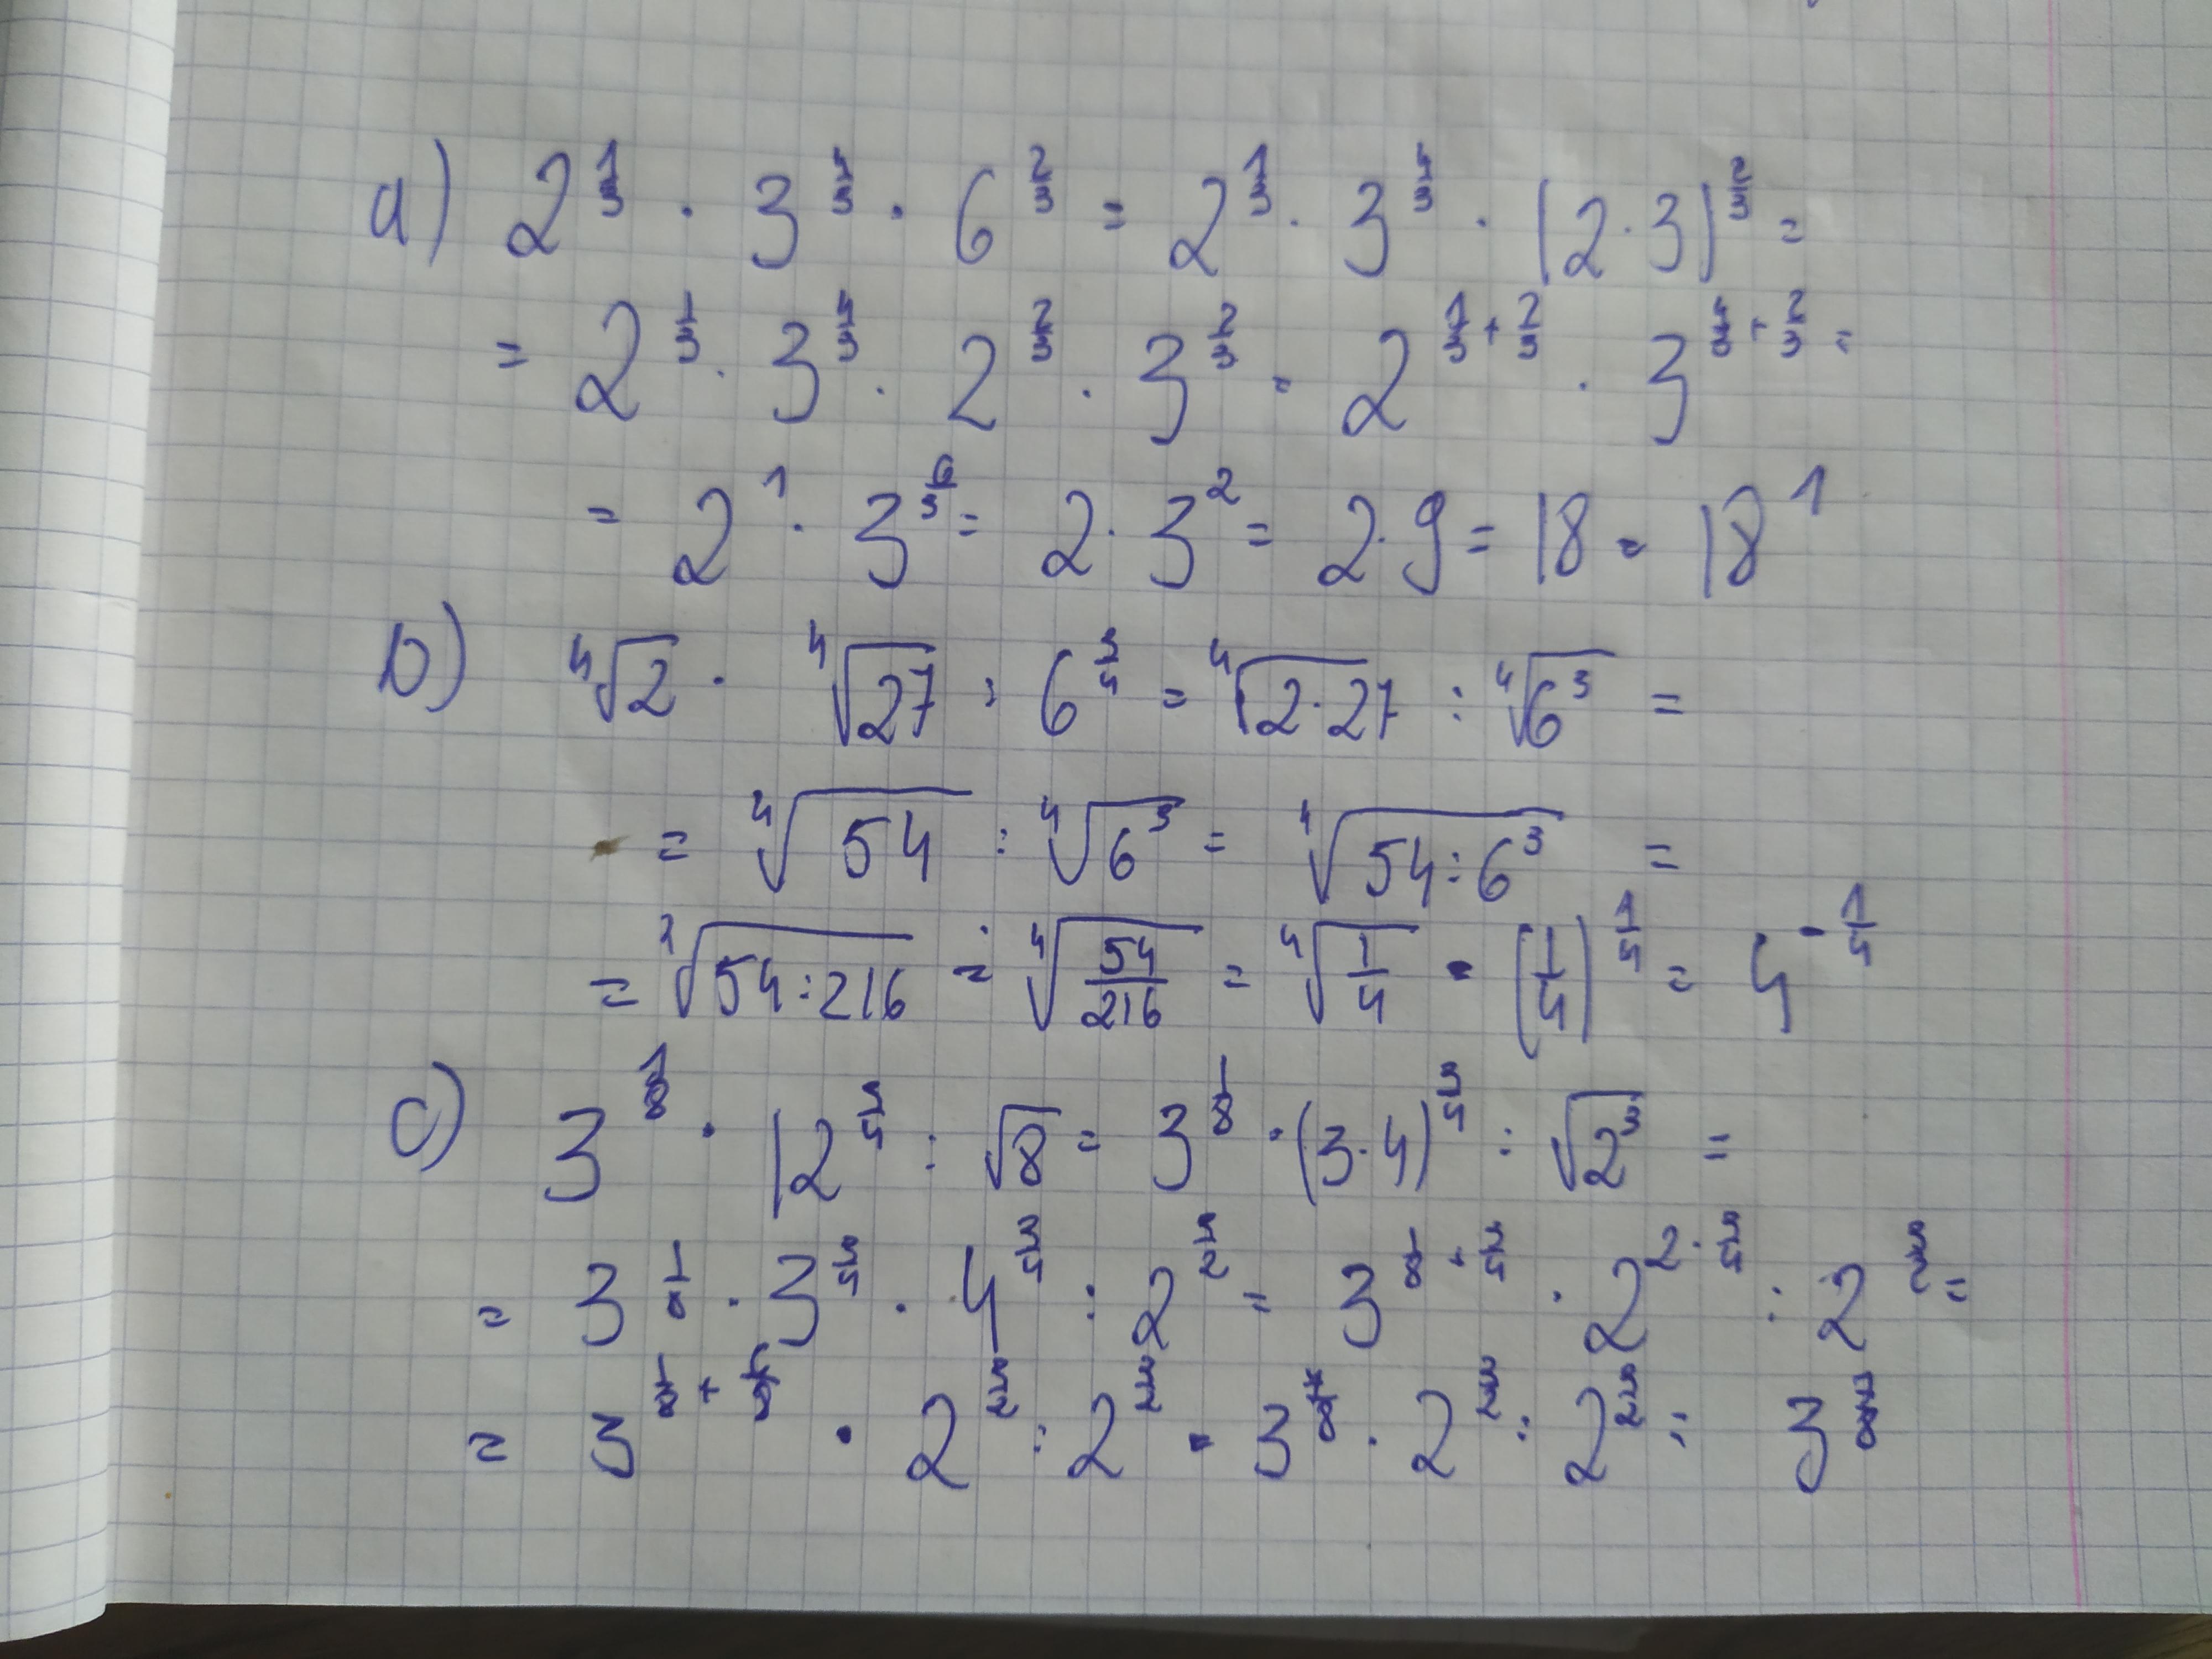 a) 2^(1/3) · 3^(4/3) · 6^(2/3) = 2^(1/3) · 3^(4/3) · (2·3)^(2/3) =
= 2^(1/3) · 3^(4/3) · 2^(2/3) · 3^(2/3) = 2^(1/3 + 2/3) · 3^(4/3 + 2/3) =
= 2^1 · 3^(6/3) = 2 · 3^2 = 2·9 = 18 = 18^1
b) ⁴√2 · ⁴√27 : 6^(3/4) = ⁴√(2·27) : ⁴√(6^3) =
= ⁴√54 : ⁴√(6^3) = ⁴√(54:6^3) =
= ⁴√(54:216) = ⁴√(54/216) = ⁴√(1/4) = (1/4)^(1/4) = 4^(-1/4)
c) 3^(1/8) · 12^(3/4) : √8 = 3^(1/8) · (3·4)^(3/4) : √(2^3) =
= 3^(1/8) · 3^(3/4) · 4^(3/4) : 2^(3/2) = 3^(1/8 + 3/4) · 2^(2·3/4) : 2^(3/2) =
= 3^(1/8 + 6/8) · 2^(3/2) : 2^(3/2) = 3^(7/8) · 2^(3/2) : 2^(3/2) = 3^(7/8)